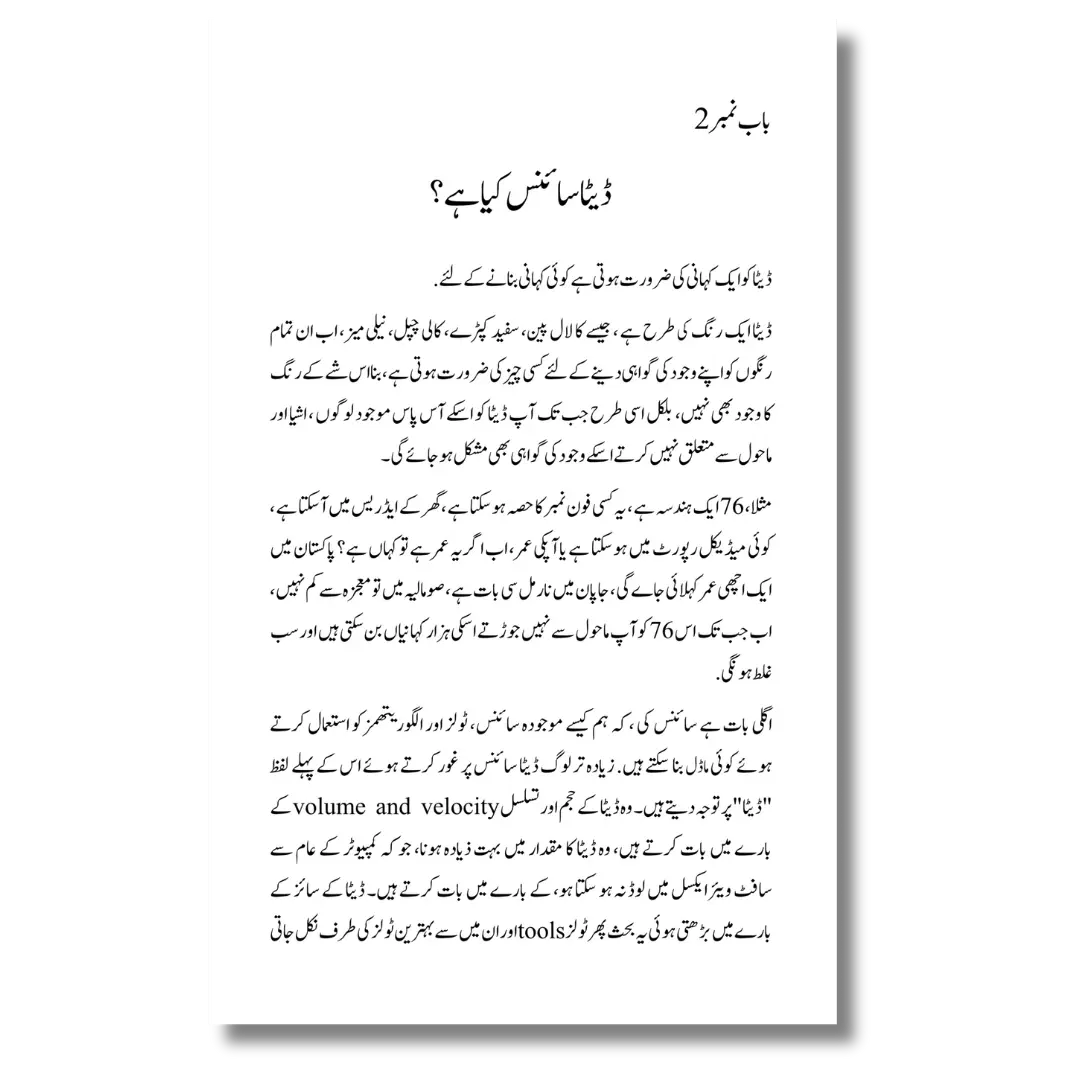 باب نمبر 2
ڈیٹا سائنس کیا ہے؟
ڈیٹا کو ایک کہانی کی ضرورت ہوتی ہے کوئی کہانی بنانے کے لئے.
ڈیٹا ایک رنگ کی طرح ہے، جیسے کا لال پین، سفید کپڑے، کالی چپل، نیلی میز، اب ان تمام
رنگوں کو اپنے وجود کی گواہی دینے کے لئے کسی چیز کی ضرورت ہوتی ہے، بنا اس شے کے رنگ
کا وجود بھی نہیں، بلکل اسی طرح جب تک آپ ڈیٹا کو اسکے آس پاس موجود لوگوں، اشیا اور
ماحول سے متعلق نہیں کرتے اسکے وجود کی گواہی بھی مشکل ہو جائے گی۔
مثلا، 76 ایک ہندسہ ہے، یہ کسی فون نمبر کا حصہ ہو سکتا ہے، گھر کے ایڈریس میں آ سکتا ہے،
کوئی میڈیکل رپورٹ میں ہو سکتا ہے یا آپکی عمر، اب اگر یہ عمر ہے تو کہاں ہے؟ پاکستان میں
ایک اچھی عمر کہلائی جاے گی، جاپان میں نارمل سی بات ہے، صومالیہ میں تو معجزہ سے کم نہیں،
اب جب تک اس 76 کو آپ ماحول سے نہیں جوڑتے اسکی ہزار کہانیاں بن سکتی ہیں اور سب
غلط ہونگی.
اگلی بات ہے سائنس کی، کہ ہم کیسے موجودہ سائنس، ٹولز اور الگوریتھمز کو استعمال کرتے
ہوئے کوئی ماڈل بنا سکتے ہیں. زیادہ تر لوگ ڈیٹا سائنس پر غور کرتے ہوئے اس کے پہلے لفظ
"ڈیٹا" پر توجہ دیتے ہیں۔ وہ ڈیٹا کے حجم اور تسلسل volume and velocity کے
بارے میں بات کرتے ہیں، وہ ڈیٹا کا مقدار میں بہت ذیادہ ہونا، جو کہ کمپیوٹر کے عام سے
سافٹ ویئر ایکسل میں لوڈ نہ ہو سکتا ہو، کے بارے میں بات کرتے ہیں۔ ڈیٹا کے سائز کے
بارے میں بڑھتی ہوئی یہ بحث پھر ٹولز tools اور ان میں سے بہترین ٹولز کی طرف نکل جاتی